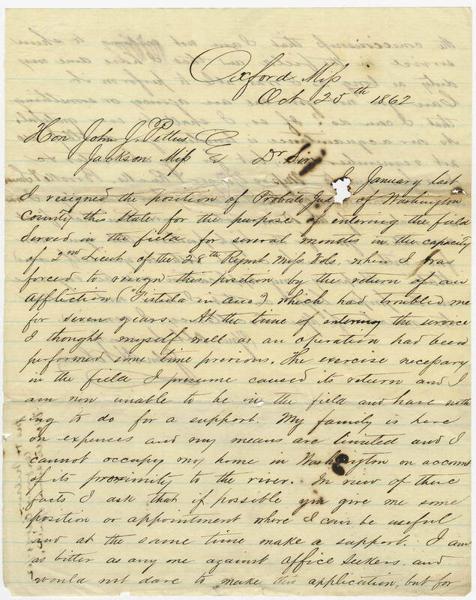 Oxford Miss
Oct 25th 1862
Hon John J. Pettus
Jackson Miss Dr Sir
In January last
I resigned the position of Probate Judge of Washington
County this State for the purpose of entering the field
Served in the field for several months in the capacity
of 2nd Lieut of the 28th Regmt Miss Vols when I was
forced to resign this position by the return of an
affliction (Fistula in ano) which had troubled me
for seven years. At the time of entering the service
I thought myself well as an operation had been
performed some time previous. The exercise necessary
in the field I presume caused its return and I
am now unable to be in the field and have noth
ing to do for a support. My family is here
on expences and my means are limited and I
cannot occupy my home in Washington on accom
of its proximity to the river. In view of these
facts I ask that if possible you give me some
position or appointment where I can be useful
and at the same time make a support. I am
as bitter as any one against office seekers and
would not dare to make this application, but for